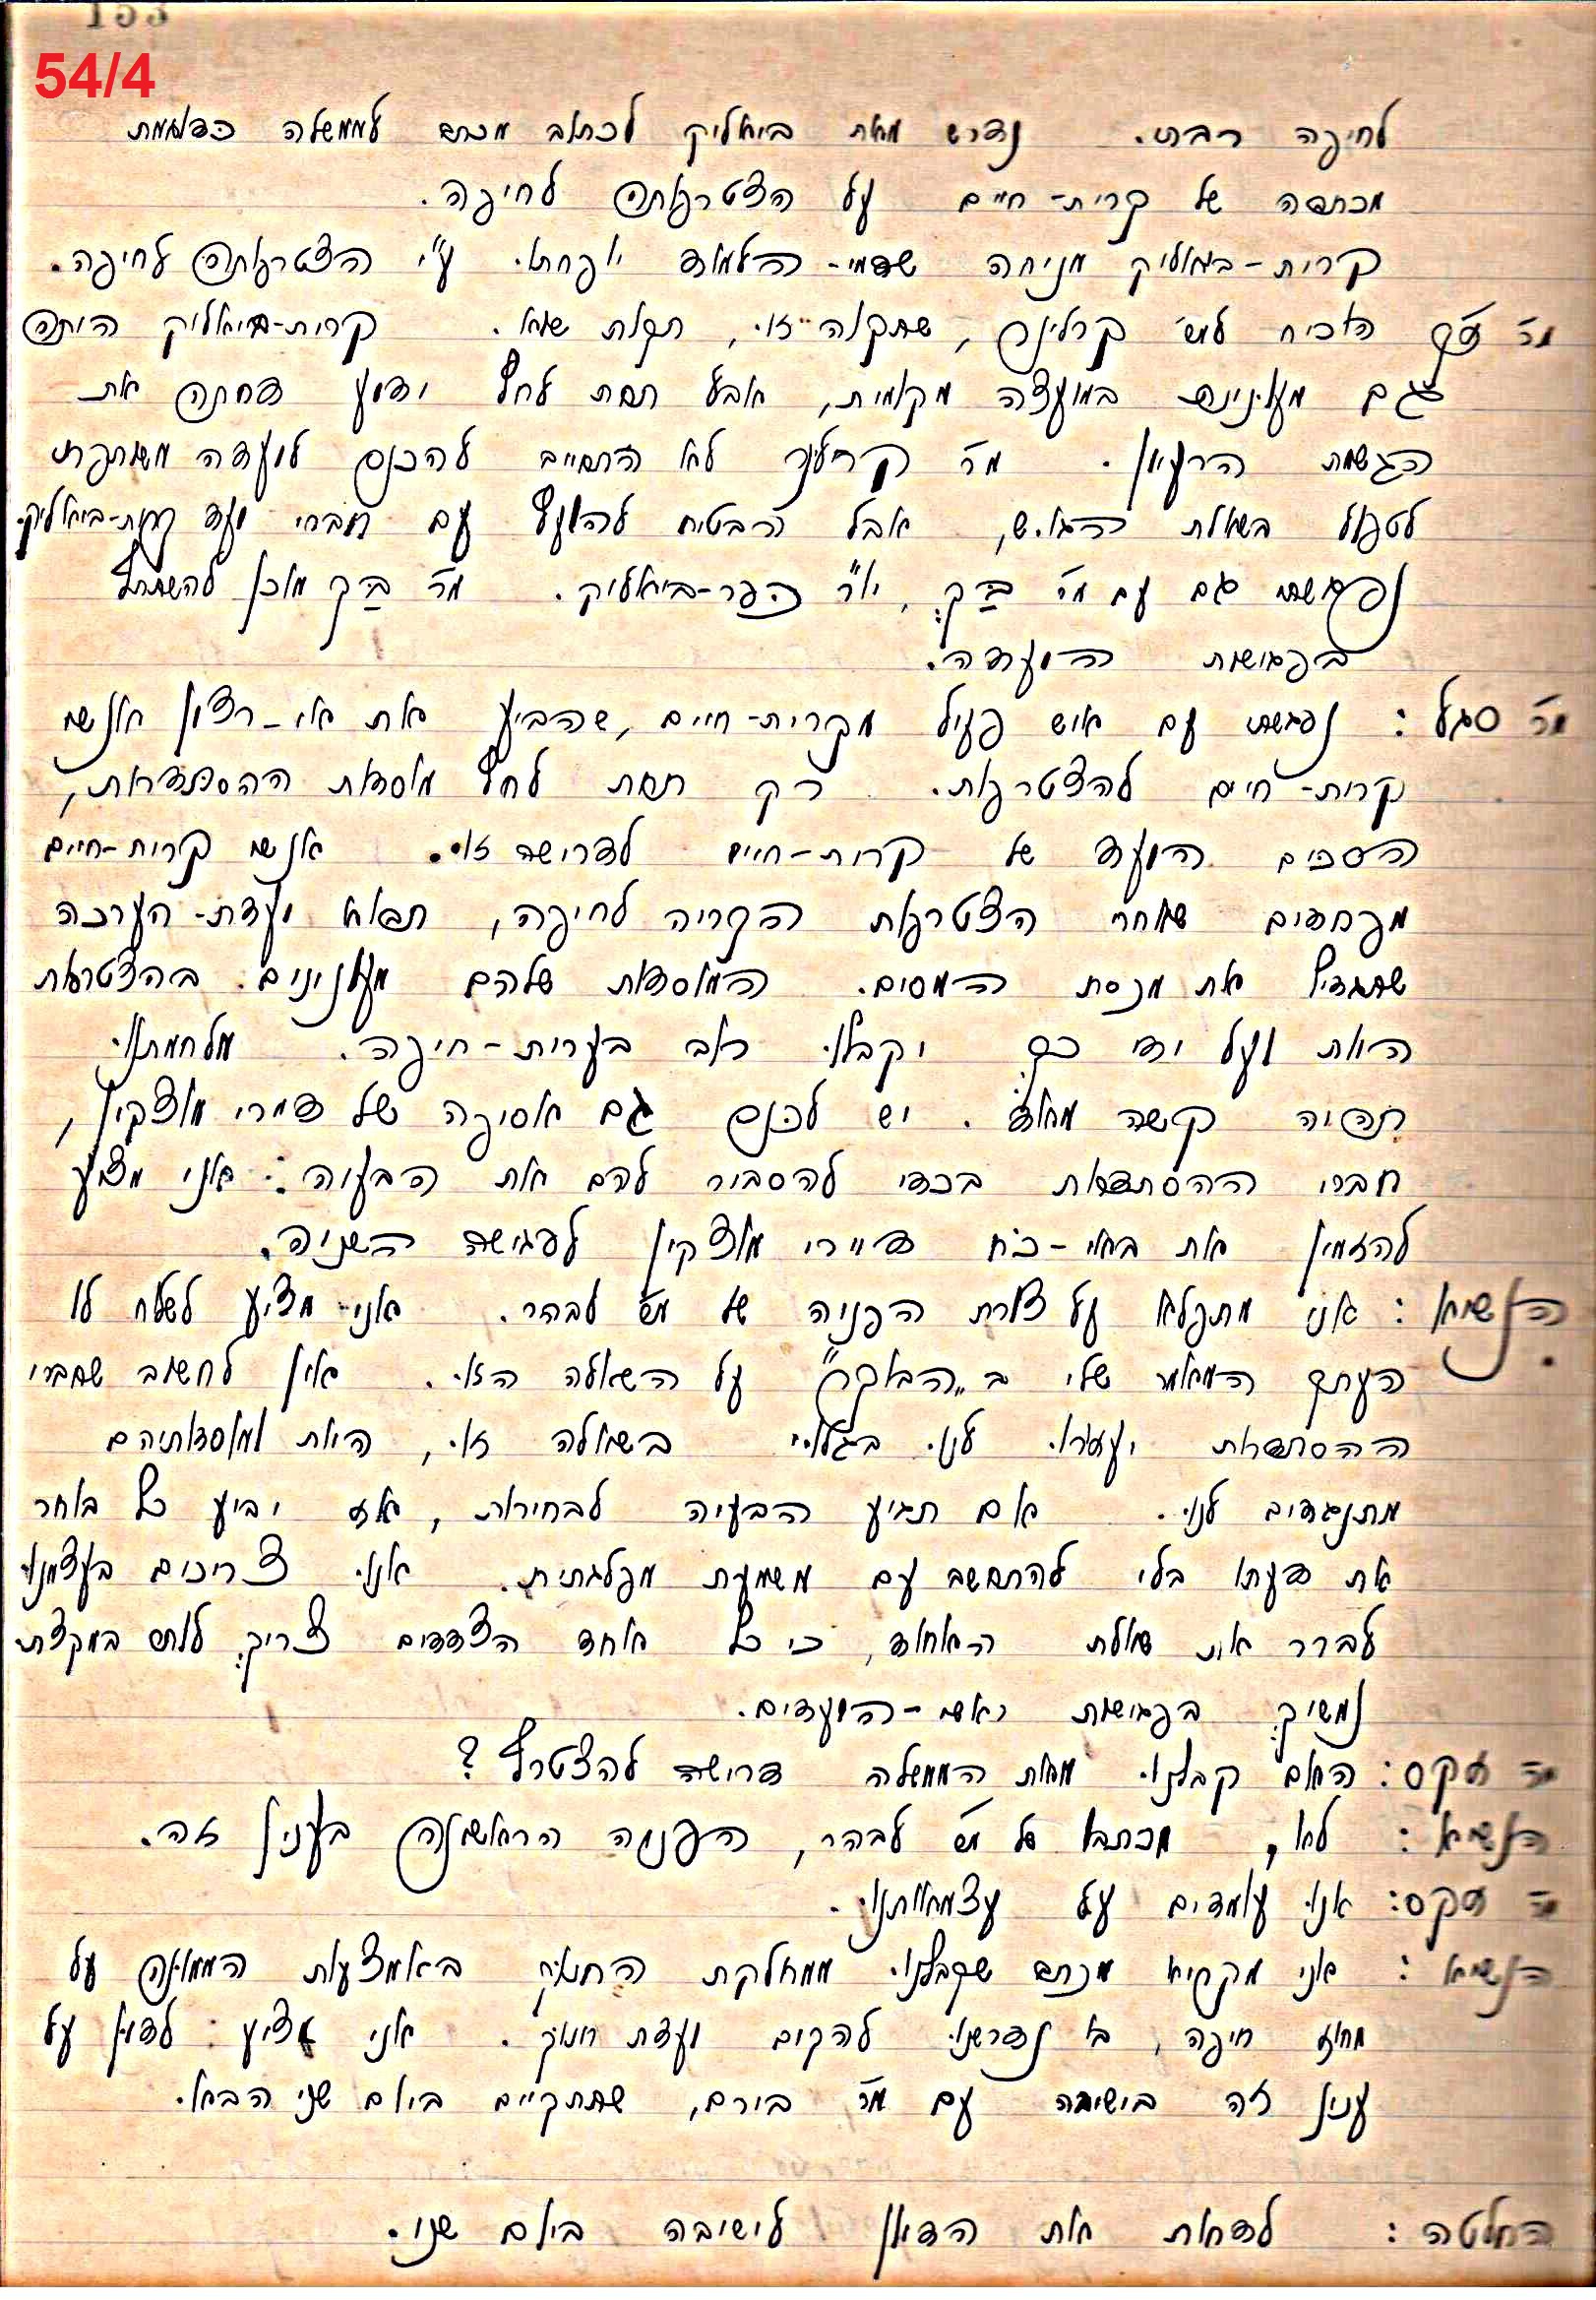 153
54/4
לחיפה רבתי. נדרש מאת ביאליק לכתוב מכתב לממשלה כדוגמת
מכתבה של קרית-חיים על הצטרפותה לחיפה.
קרית-ביאליק מניחה שדמי-הלמוד יופחתו ע"י הצטרפותה לחיפה.
מר הוכיח למש' קרלינר, שתקוה זו, תקות שוא. קרית-ביאליק היתה
גם מעונינת במועצה מקומית, אבל תחת לחץ ידוע דחתה את
הגשמת הרעיון. מר קרלינר לא התחייב להכנס לועדה משותפת
לטפול בשאלת הגוש, אבל הבטיח להועץ עם חברי ועד קרית-ביאליק.
נפגשתי גם עם מר בק, יו"ר כפר-ביאליק. מר בק מוכן להשתתף
בפגישות הועדה.
מר סגל: נפגשתי עם איש פעיל מקרית-חיים, שהביע את אי-רצון אנשי
קרית-חיים להצטרפות. רק תחת לחץ מוסדות ההסתדרות,
הסכים הועד של קרית-חיים לדרישה זו. אנשי קרית-חיים
מפחדים שאחרי הצטרפות הקריה לחיפה, תבוא ועדת-הערכה
שתגדיל את מכסת המסים. המוסדות שלהם מעונינים בהצטרפות
היות ועל ידי כך יקבלו רוב בערית-חיפה. מלחמתנו
תהיה קשה מאוד. יש לכנס גם אסיפה של דיירי מוצקין,
חברי ההסתדרות בכדי להסביר להם את הבעיה. אני מציע
להזמין את באי-כח דיירי מוצקין לפגישה השניה.
הנשיא: אני מתפלא על צורת הפניה של מש' לבהר. אני מציע לשלוח לו
העתק המאמר שלי ב"הבוקר" על השאלה הזו. אין לחשוב שחברי
ההסתדרות יעזרו לנו בגלוי בשאלה זו, היות ומוסדותיהם
מתנגדים לנו. אם תגיע הבעיה לבחירות, אז יביע כל בוחר
את דעתו בלי להתחשב עם משמעת מפלגתית. אנו צריכים בעצמנו
לברר את שאלת האחוד, כי כל אחד הצדדים צריך לותר במקצת.
נמשיך בפגישות ראשי-הועדים.
מר זקס: האם קבלנו מאת הממשלה דרישה להצטרף?
הנשיא: לא, מכתבו של מש' לבהר, הפניה הראשונה בענין זה.
מר זקס: אנו עומדים על עצמאותנו.
הנשיא: אני מקריא מכתב שקבלנו ממחלקת החנוך באמצעות הממונה על
מחוז חיפה, בו נדרשנו להקים ועדת חנוך. אני מציע לדון על
ענין זה בישיבה עם מר בירם, שתתקיים ביום שני הבא.
החלטה: לדחות את הדיון לישיבה ביום שני.